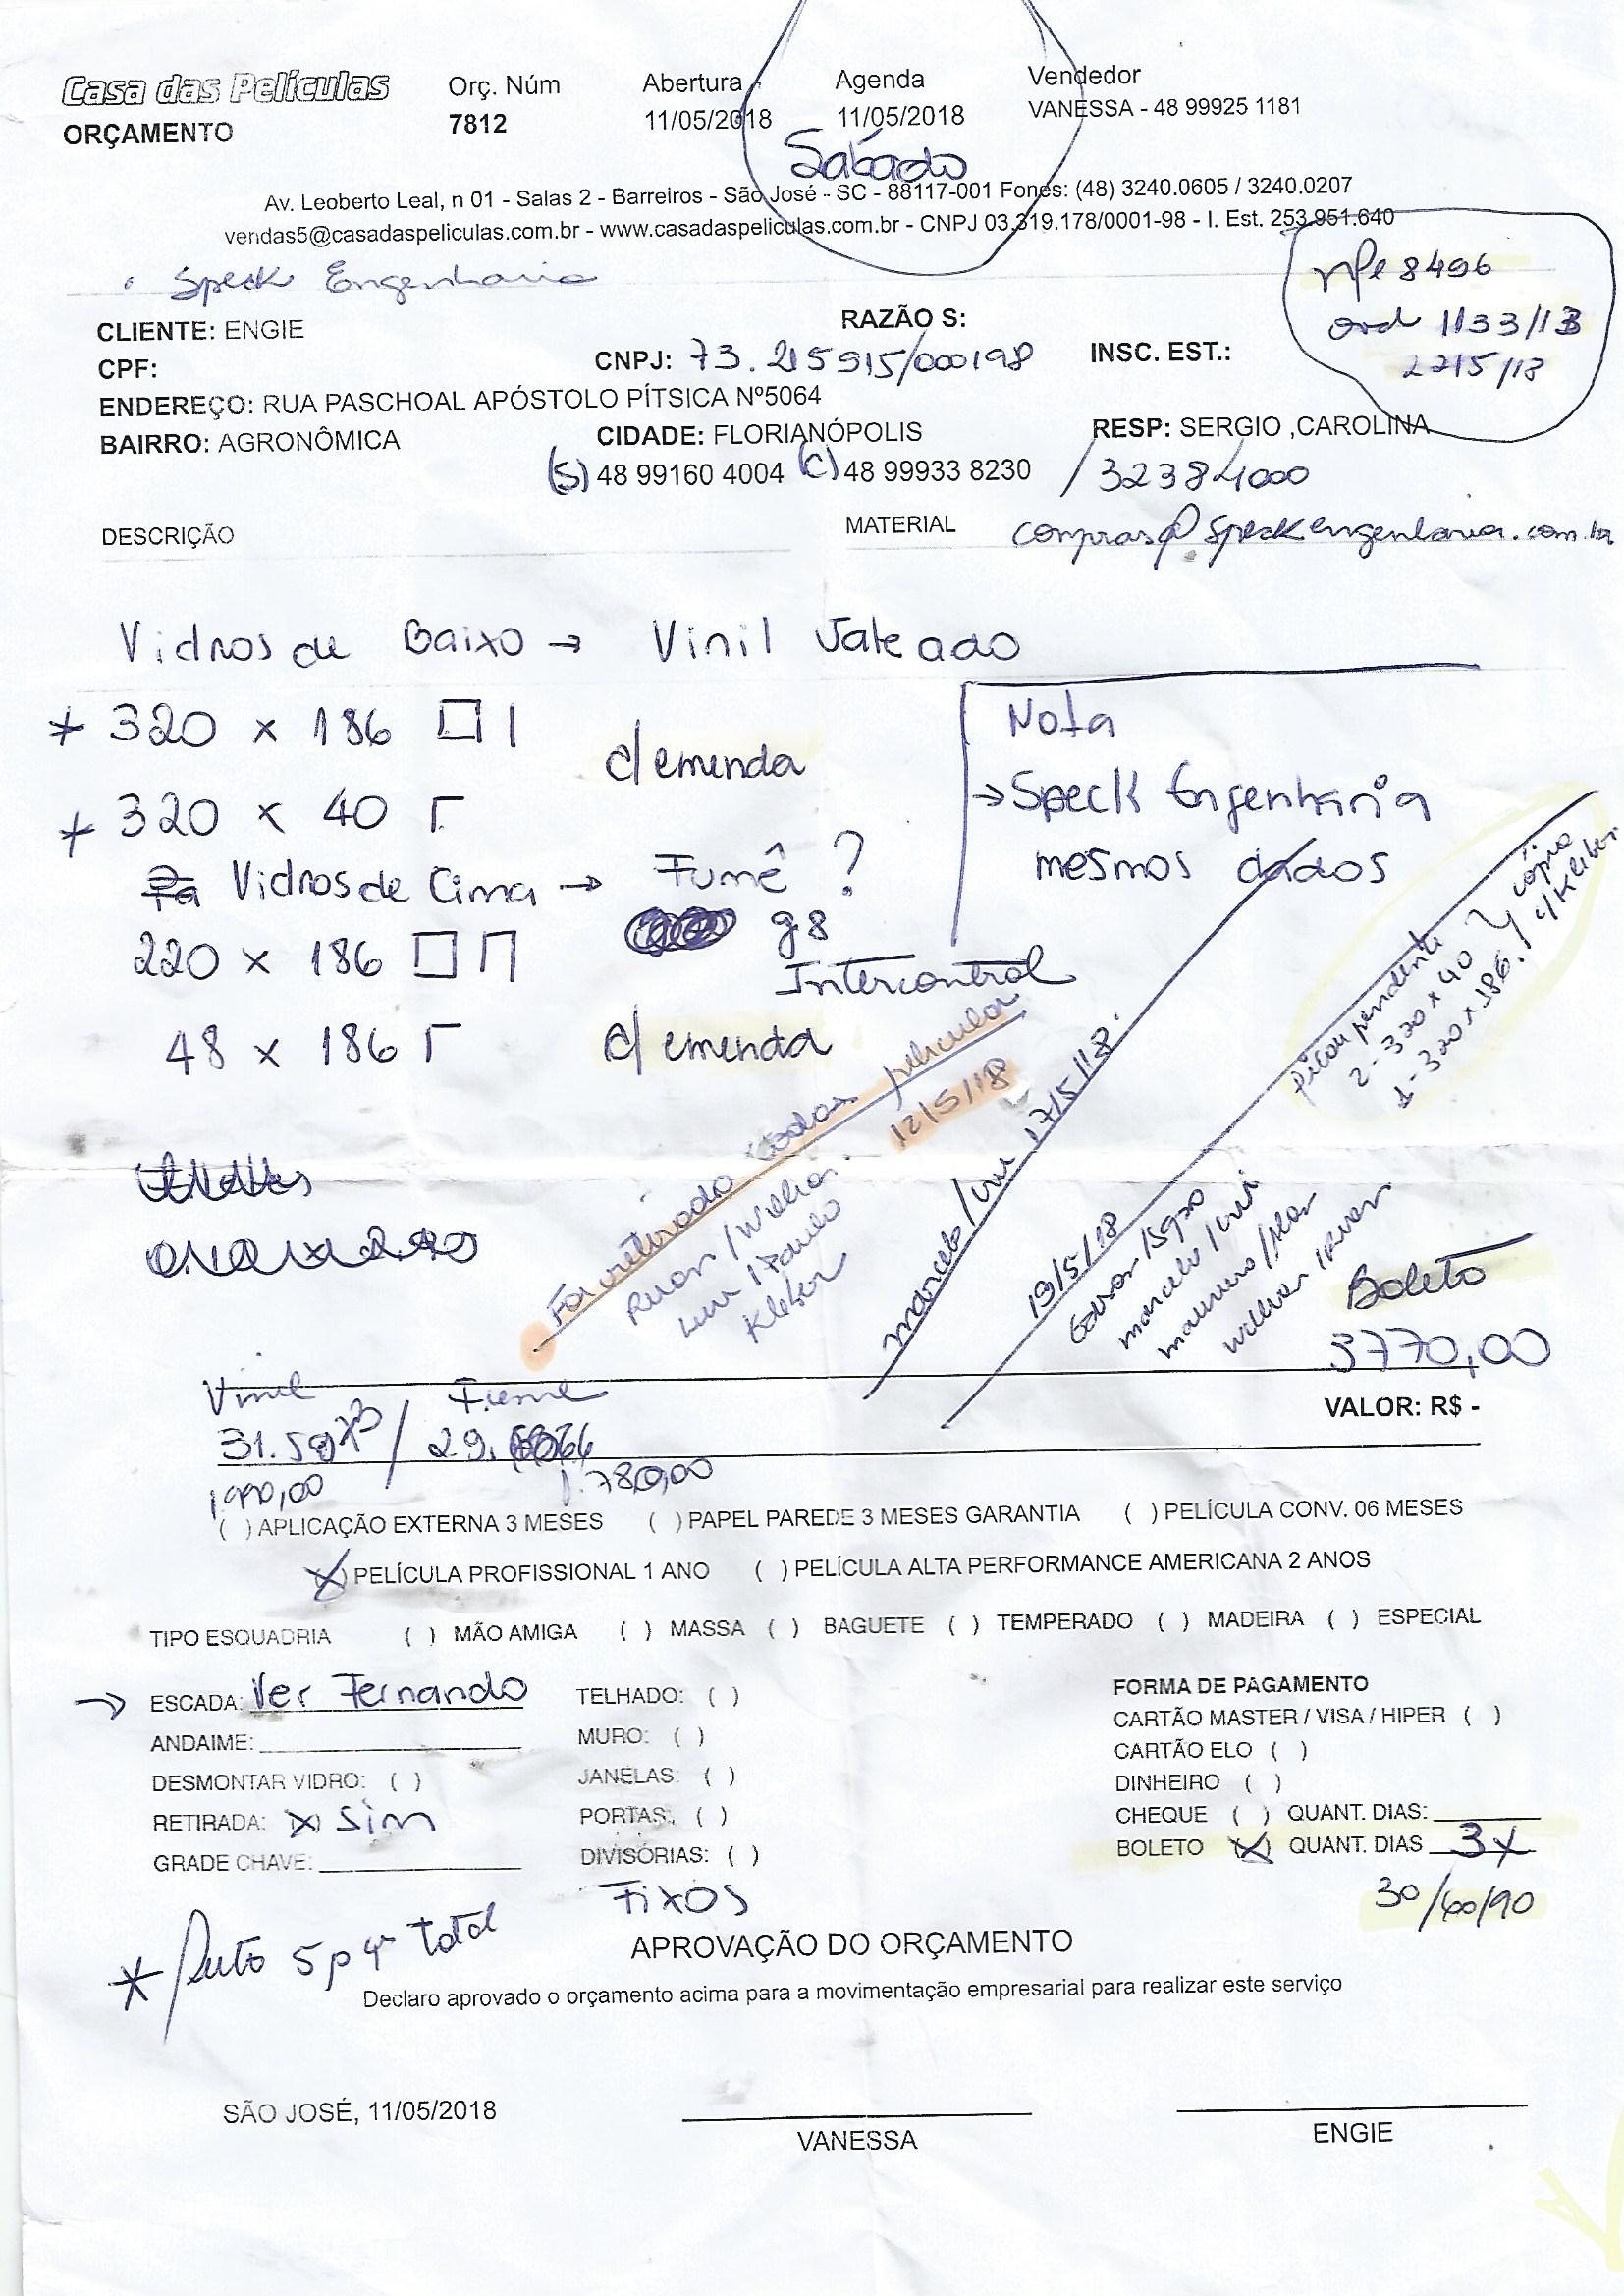 Casa das Películas
ORÇAMENTO
Orç. Núm
7812
Abertura
11/05/2018
Agenda
11/05/2018
Sabado
Vendedor
VANESSA - 48 99925 1181
Av. Leoberto Leal, n 01 - Salas 2 - Barreiros - São José - SC - 88117-001 Fones: (48) 3240.0605 / 3240.0207
vendas5@casadaspeliculas.com.br - www.casadaspeliculas.com.br - CNPJ 03.319.178/0001-98 - I. Est. 253.951.640
Speck Engenharia
nfe 8496
ord 1133/13
22/5/18
CLIENTE: ENGIE
RAZÃO S:
CPF:
CNPJ: 73.215915/000198
INSC. EST.:
ENDEREÇO: RUA PASCHOAL APÓSTOLO PÍTSICA Nº5064
BAIRRO: AGRONÔMICA
CIDADE: FLORIANÓPOLIS
RESP: SERGIO ,CAROLINA
(S) 48 99160 4004 (C) 48 99933 8230 / 32384000
DESCRIÇÃO
MATERIAL
compras@speckengenharia.com.br
Vidros de Baixo → Vinil Jateado
* 320 x 186 □ |
c/ emenda
* 320 x 40 Γ
Nota
→ Speck Engenharia
mesmos dados
Vidros de Cima → Fumê ?
g8
220 x 186 □ Π
Intercontrol
48 x 186 Γ
c/ emenda
Ficou pendente
2 - 320 x 40
1 - 320 x 186.
cópia
c/ Kleber
Foi retirado todas pelicula
12/5/18
Ruan / Willian
Luri / Paulo
Kleber
Marcelo / Luri 17/5/18.
19/5/18
marcelo / Luri
Willian / Ruan
Boleto
3770,00
Vinil
Fume
31.59 / 29.
1.990,00
1.780,00
VALOR: R$ -
( ) APLICAÇÃO EXTERNA 3 MESES ( ) PAPEL PAREDE 3 MESES GARANTIA ( ) PELÍCULA CONV. 06 MESES
(X) PELÍCULA PROFISSIONAL 1 ANO ( ) PELÍCULA ALTA PERFORMANCE AMERICANA 2 ANOS
TIPO ESQUADRIA ( ) MÃO AMIGA ( ) MASSA ( ) BAGUETE ( ) TEMPERADO ( ) MADEIRA ( ) ESPECIAL
→ ESCADA: Ver Fernando
ANDAIME:
DESMONTAR VIDRO: ( )
RETIRADA: (X) Sim
GRADE CHAVE:
TELHADO: ( )
MURO: ( )
JANELAS: ( )
PORTAS: ( )
DIVISÓRIAS: ( )
Fixos
FORMA DE PAGAMENTO
CARTÃO MASTER / VISA / HIPER ( )
CARTÃO ELO ( )
DINHEIRO ( )
CHEQUE ( ) QUANT. DIAS:
BOLETO (X) QUANT. DIAS 3x
30/60/90
* 5 p 4 total
APROVAÇÃO DO ORÇAMENTO
Declaro aprovado o orçamento acima para a movimentação empresarial para realizar este serviço
SÃO JOSÉ, 11/05/2018
VANESSA
ENGIE